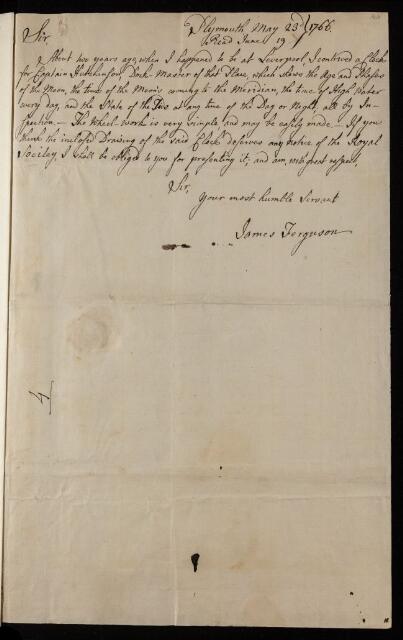 Plymouth May 23d 1766.
Read June 19
Sir,
About two years ago, when I happened to be at Liverpool, I contrived a Clock
for Captain Hutchinson, Dock-Master of that Place, which shews the Age and Phases
of the Moon, the time of the Moon's coming to the Meridian, the time of High Water
every day, and the State of the Tide at any time of the Day or Night, all by In-
spection. — The Wheel-work is very simple, and may be easily made — If you
think the inclosed Drawing of the said Clock deserves any notice of the Royal
Society I shall be obliged to you for presenting it; and am, with great respect,
Sir,
Your most humble Servant
James Ferguson
4